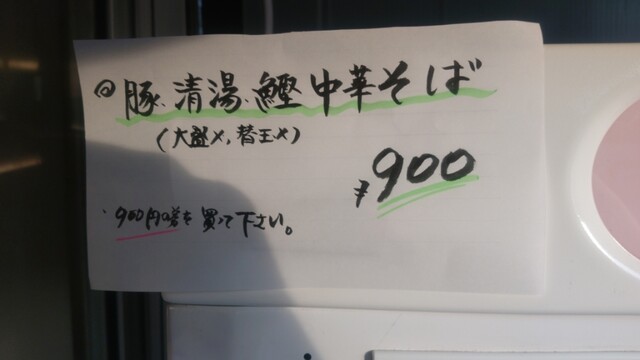 ◎豚.清湯.鰹中華そば
(大盛×,替玉×)
¥900
・900円の券を買って下さい。